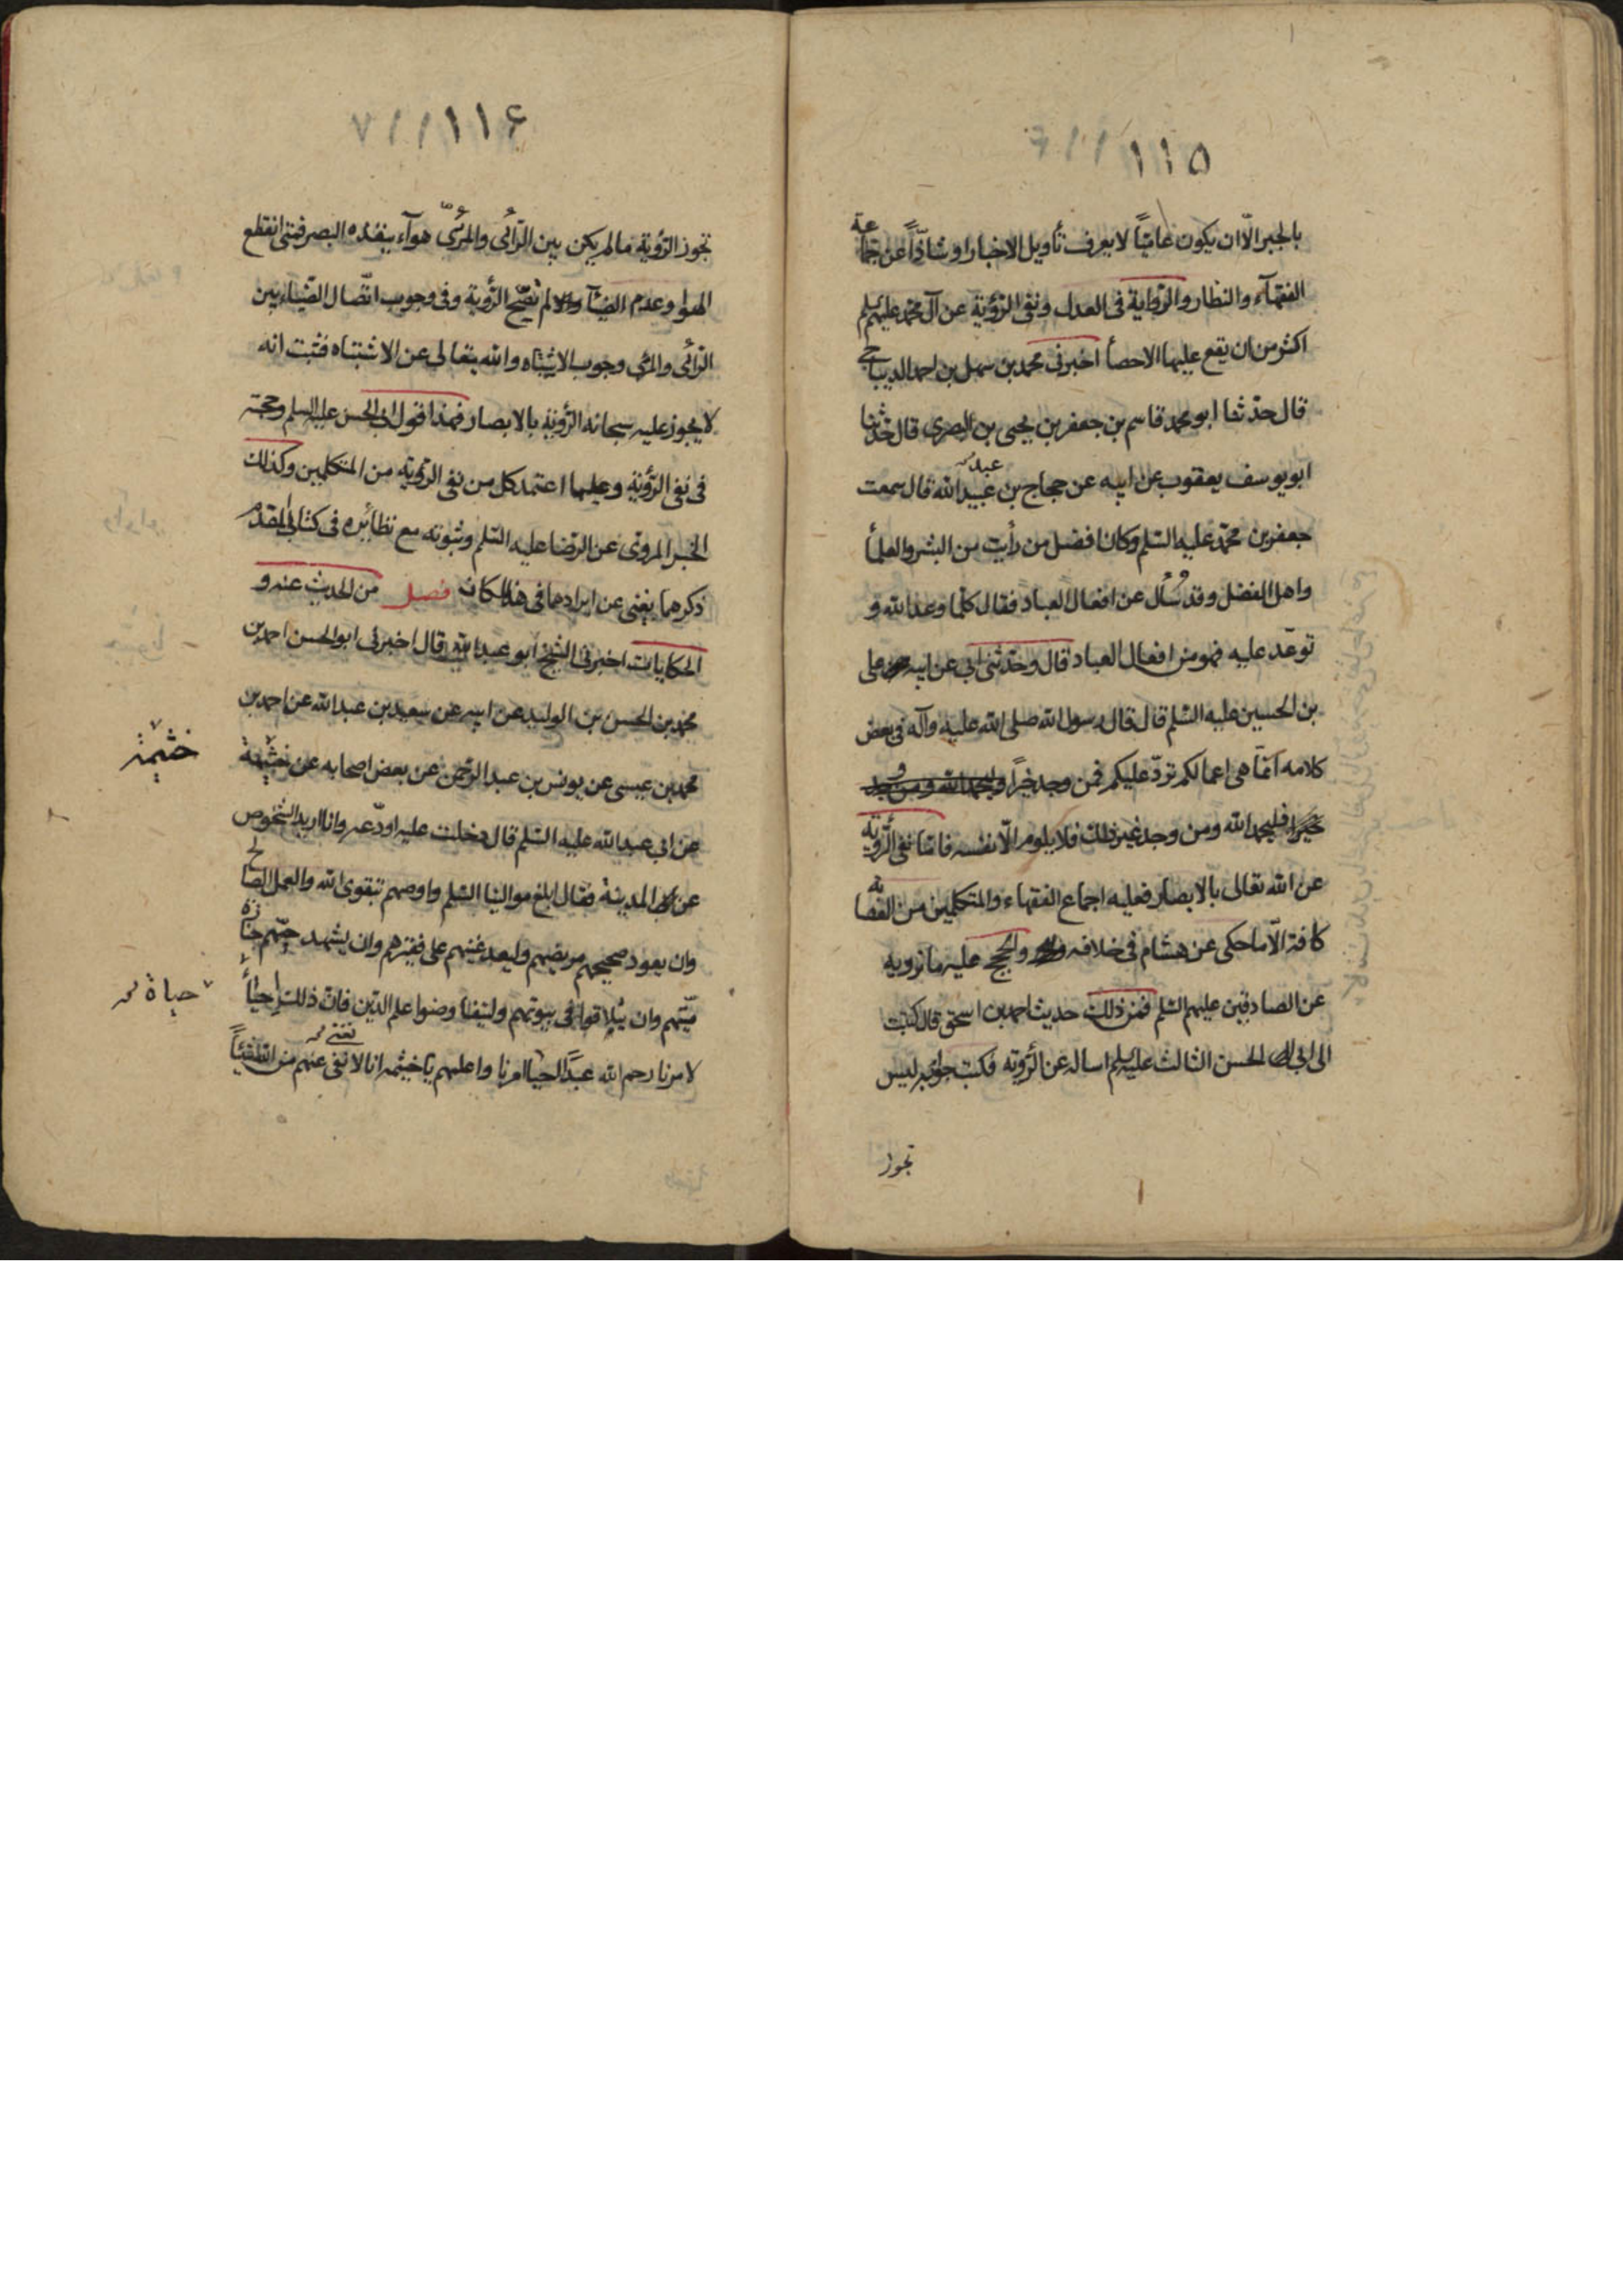 ١١٥
بالجبر الّا ان يكون عاميّاً لا يعرف تأويل الاخبار او شاذّاً عن جماعة
الفقهآء والنظار والرّواية فى العدل ونفى الرّؤية عن آل محمد عليهم السلم
اكثر من ان يقع عليها الاحصأ اخبرنى محمد بن سهل بن احمد الديباجى
قال حدّثنا ابو محمد قاسم بن جعفر بن يحيى بن المصرى قال حدّثنا
ابو يوسف يعقوب عن ابيه عن حجاج بن عبيد الله قال سمعت
عبد
جعفر بن محمّد عليه السّلم وكان افضل من رأيت من البشر والعلمأ
واهل الفضل وقد سُأل عن افعال العباد فقال كلّما وعد الله و
توعّد عليه فهو من افعال العباد قال وحدّثنى ابى عن ابيه على
بن الحسين عليه السّلم قال قال رسول الله صلى الله عليه وآله فى بعض
كلامه انّما هى اعمالكم تردّ عليكم فمن وجد خيراً
خيرا فليحمد الله ومن وجد غير ذلك فلا يلومر الّا نفسه فامّا نفى الرّؤية
عن الله تعالى بالابصار فعليه اجماع الفقهاء والمتكلمين من العصابة
كافة الّا ما حكى عن هشام فى خلافه والحجج عليه ما نرويه
عن الصادقين عليهم السّلم فمن ذلك حديث احمد بن اسحق قال كتبت
الى ابى الحسن الثالث عليه السلم اساله عن الرّؤية فكتب جوابه ليس
تجوز
١١۶
تجوز الرّؤية مالم يكن بين الرّائى والمرئىّ هوآء ينفذه البصر فمتى انقطع
الهوا وعدم الضيآ لم تصحّ الرّؤية وفى وجوب اتّصال الضّياء بين
الرّائى والمرئى وجوب الاشتباه والله يتعالى عن الاشتباه فثبت انه
لا يجوز عليه سبحانه الرّؤية بالابصار فهذا قول ابى الحسن عليه السلم وحجته
فى نفى الرّؤية وعليها اعتمد كل من نفى الرّؤية من المتكلمين وكذلك
الخبر المروىّ عن الرّضا عليه السّلم وثبوته مع نظائره فى كتابى المقدّم
ذكرهما يغنى عن ايرادها فى هذا المكان فصل من الحديث عنه و
الحكايات اخبرنى الشيخ ابو عبد الله قال اخبرنى ابو الحسن احمد بن
محمد بن الحسن بن الوليد عن ابيه عن سعيد بن عبد الله عن احمد بن
محمد بن عيسى عن يونس بن عبد الرّحمن عن بعض اصحابه عن خثيمة
خثيمة
عن ابى عبد الله عليه السّلم قال دخلت عليه اودّعه وانا اريد الشّخوص
عن المدينة فقال ابلغ موالينا السّلم واوصهم بتقوى الله والعمل الصّالح
وان يعود صحيحهم مريضهم وليعد غنيهم على فقيرهم وان يشهد حيّهم جنازة
ميّتهم وان يتلاقوا فى بيوتهم وليتفا وضوا علم الدّين فان ذلك احياءً
حياة
لامرنا رحم الله عبداً احيا امرنا واعلمهم يا خيثمه انا لا نغنى عنهم من الله شيئاً
نغنى